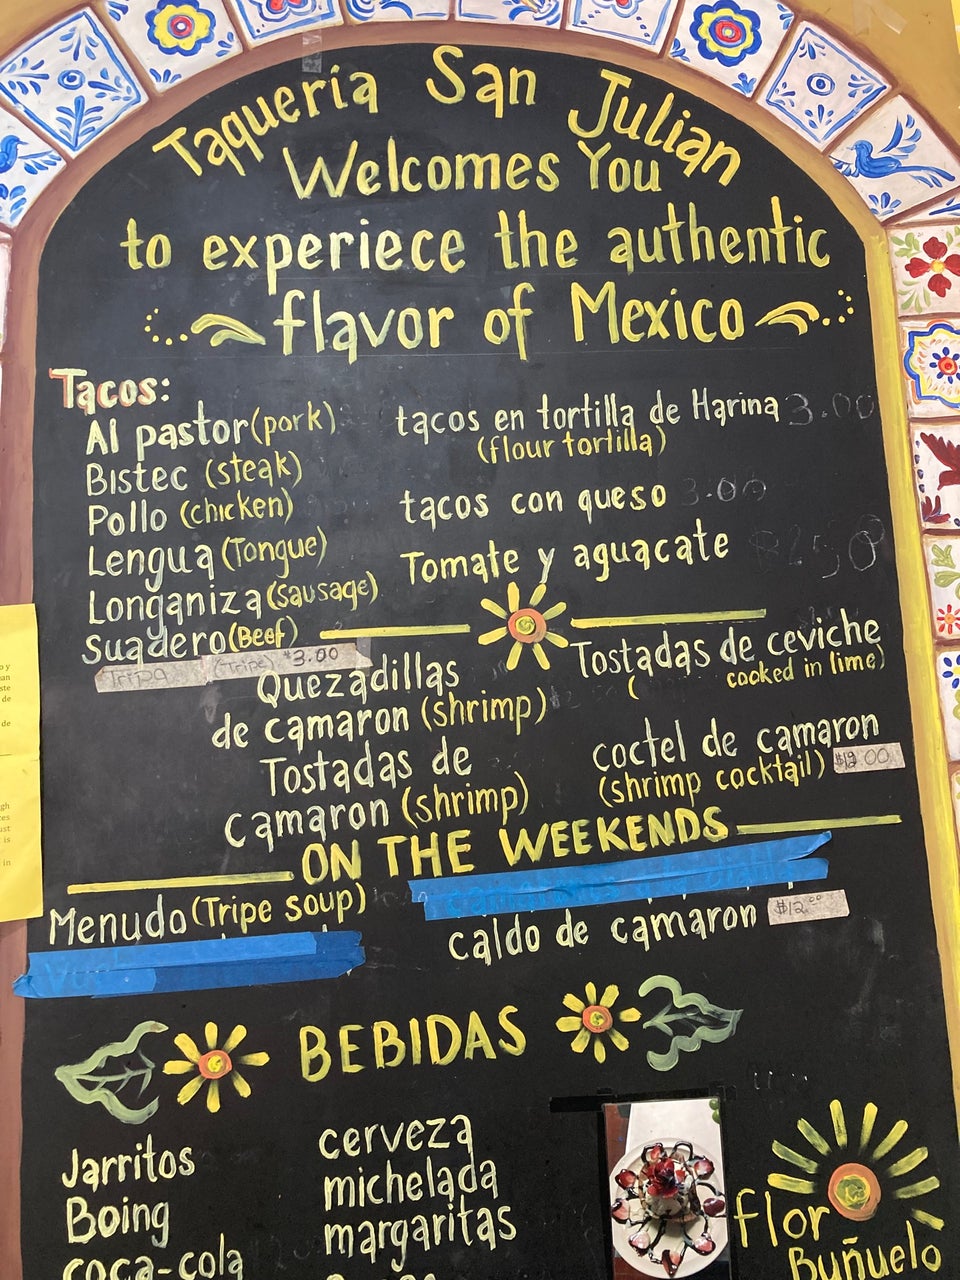 Taqueria San Julian
Welcomes You
to experiece the authentic
flavor of Mexico
Tacos:
Al pastor (pork)
Bistec (steak)
Pollo (chicken)
Lengua (Tongue)
Longaniza (Sausage)
Suadero (Beef)
Tripa (Tripe) $3.00
tacos en tortilla de Harina 3.00
(flour tortilla)
tacos con queso 3.00
Tomate y aguacate
Quezadillas
de camaron (shrimp)
Tostadas de
camaron (shrimp)
Tostadas de ceviche
( cooked in lime)
coctel de camaron
(shrimp cocktail) $12.00
ON THE WEEKENDS
Menudo (Tripe soup)
caldo de camaron $12.00
BEBIDAS
Jarritos
Boing
coca-cola
cerveza
michelada
margaritas
flor
Buñuelo